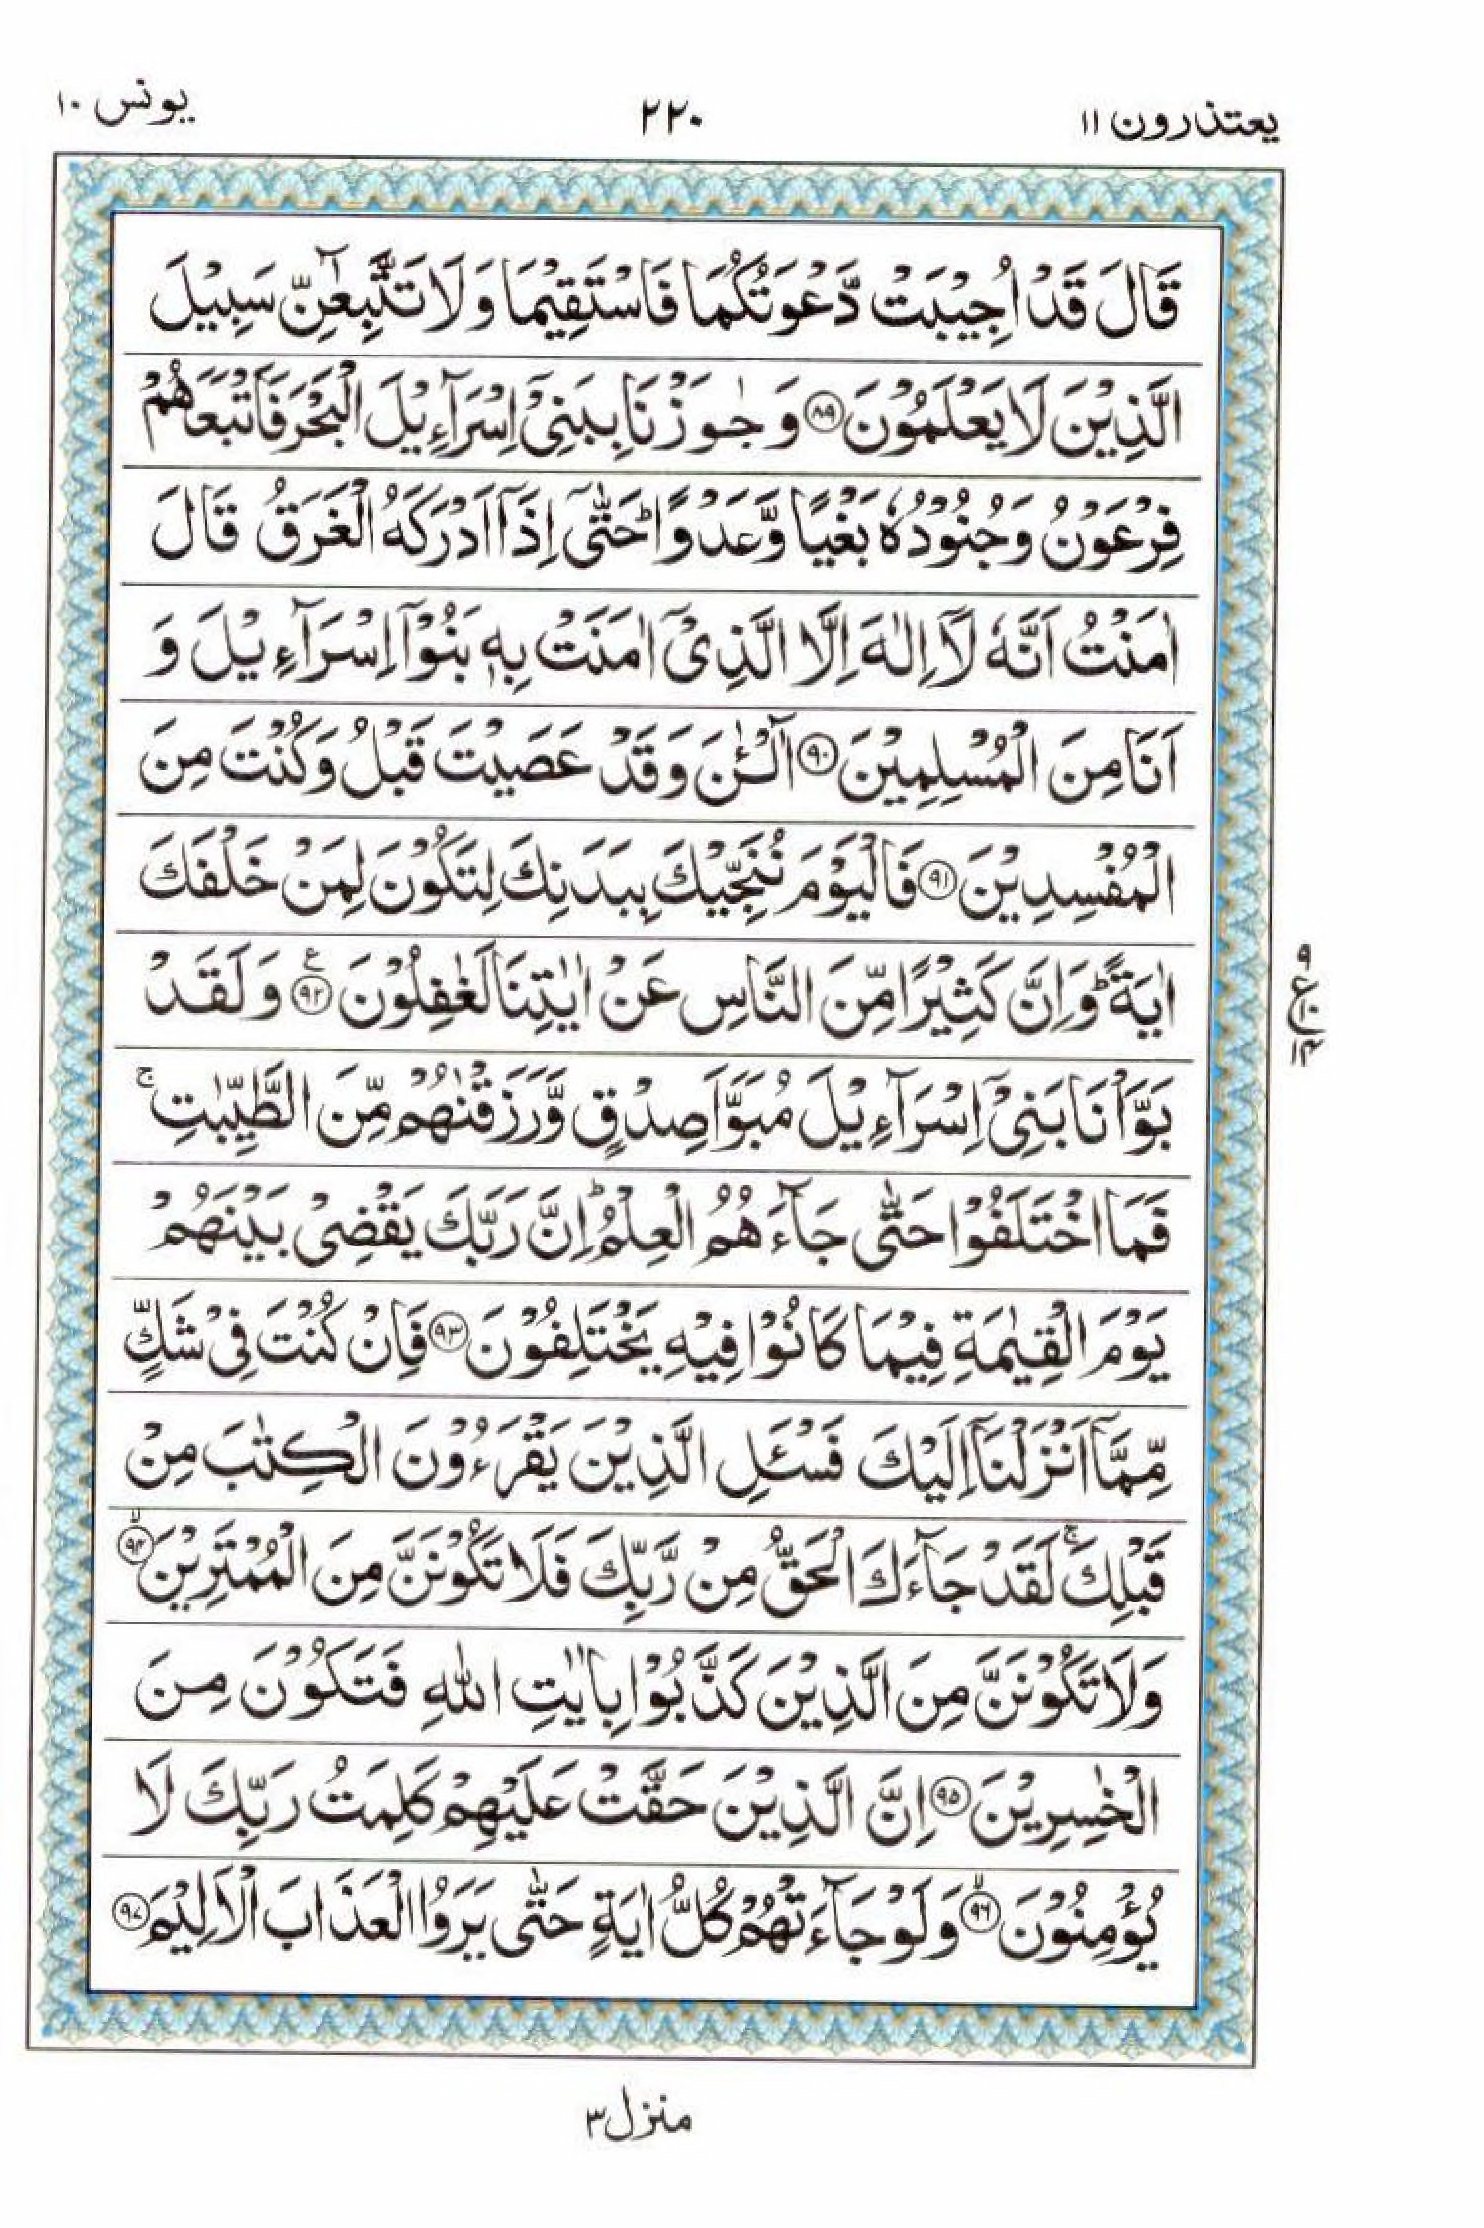 یعتذرون ۱۱
۲۲۰
یونس ۱۰
قَالَ قَدْ اُجِیْبَتْ دَّعْوَتُكُمَا فَاسْتَقِیْمَا وَ لَا تَتَّبِعٰٓنِّ سَبِیْلَ
الَّذِیْنَ لَا یَعْلَمُوْنَ ﴿۸۹﴾ وَ جٰوَزْنَا بِبَنِیْۤ اِسْرَآءِیْلَ الْبَحْرَ فَاَتْبَعَهُمْ
فِرْعَوْنُ وَ جُنُوْدُهٗ بَغْیًا وَّ عَدْوًا ؕ حَتّٰۤی اِذَاۤ اَدْرَكَهُ الْغَرَقُ قَالَ
اٰمَنْتُ اَنَّهٗ لَاۤ اِلٰهَ اِلَّا الَّذِیْۤ اٰمَنَتْ بِهٖ بَنُوْۤا اِسْرَآءِیْلَ وَ
اَنَا مِنَ الْمُسْلِمِیْنَ ﴿۹۰﴾ آٰلْـٰٔنَ وَ قَدْ عَصَیْتَ قَبْلُ وَ كُنْتَ مِنَ
الْمُفْسِدِیْنَ ﴿۹۱﴾ فَالْیَوْمَ نُنَجِّیْكَ بِبَدَنِكَ لِتَكُوْنَ لِمَنْ خَلْفَكَ
اٰیَةً ؕ وَ اِنَّ كَثِیْرًا مِّنَ النَّاسِ عَنْ اٰیٰتِنَا لَغٰفِلُوْنَ ﴿۹۲﴾ ع وَ لَقَدْ
۹
ع
۱۰
۱۴
بَوَّاْنَا بَنِیْۤ اِسْرَآءِیْلَ مُبَوَّاَ صِدْقٍ وَّ رَزَقْنٰهُمْ مِّنَ الطَّیِّبٰتِ ۚ
فَمَا اخْتَلَفُوْا حَتّٰی جَآءَهُمُ الْعِلْمُ ؕ اِنَّ رَبَّكَ یَقْضِیْ بَیْنَهُمْ
یَوْمَ الْقِیٰمَةِ فِیْمَا كَانُوْا فِیْهِ یَخْتَلِفُوْنَ ﴿۹۳﴾ فَاِنْ كُنْتَ فِیْ شَكٍّ
مِّمَّاۤ اَنْزَلْنَاۤ اِلَیْكَ فَسْـَٔلِ الَّذِیْنَ یَقْرَءُوْنَ الْكِتٰبَ مِنْ
قَبْلِكَ ۚ لَقَدْ جَآءَكَ الْحَقُّ مِنْ رَّبِّكَ فَلَا تَكُوْنَنَّ مِنَ الْمُمْتَرِیْنَ ﴿ۙ۹۴﴾
وَ لَا تَكُوْنَنَّ مِنَ الَّذِیْنَ كَذَّبُوْا بِاٰیٰتِ اللّٰهِ فَتَكُوْنَ مِنَ
الْخٰسِرِیْنَ ﴿۹۵﴾ اِنَّ الَّذِیْنَ حَقَّتْ عَلَیْهِمْ كَلِمَتُ رَبِّكَ لَا
یُؤْمِنُوْنَ ﴿ۙ۹۶﴾ وَ لَوْ جَآءَتْهُمْ كُلُّ اٰیَةٍ حَتّٰی یَرَوُا الْعَذَابَ الْاَلِیْمَ ﴿۹۷﴾
منزل ۳